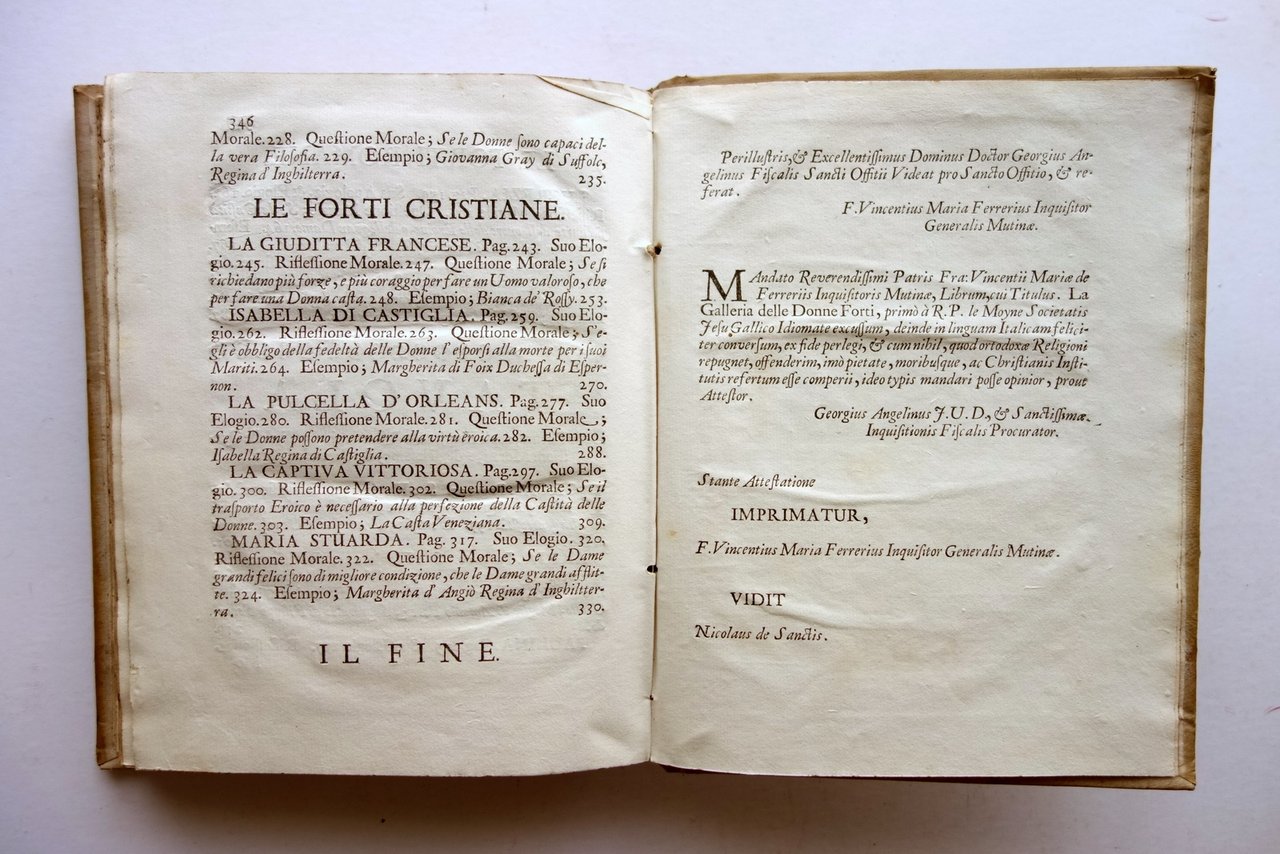 346
Morale.228. Queſtione Morale; Se le Donne ſono capaci del-
la vera Filoſofia. 229. Eſempio; Giovanna Gray di Suffolc,
Regina d' Inghilterra. 235.
LE FORTI CRISTIANE.
LA GIUDITTA FRANCESE. Pag.243. Suo Elo-
gio.245. Rifleſſione Morale.247. Queſtione Morale; Se ſi
richiedano più forze, e più coraggio per fare un Uomo valoroſo, che
per fare una Donna caſta. 248. Eſempio; Bianca de' Roſſy. 253.
ISABELLA DI CASTIGLIA. Pag.259. Suo Elo-
gio.262. Rifleſſione Morale.263. Queſtione Morale; S'e-
gli è obbligo della fedeltà delle Donne l' eſporſi alla morte per i ſuoi
Mariti. 264. Eſempio; Margherita di Foix Ducheſſa di Eſper-
non. 270.
LA PULCELLA D'ORLEANS. Pag.277. Suo
Elogio.280. Rifleſſione Morale.281. Queſtione Morale;
Se le Donne poſſono pretendere alla virtù eroica. 282. Eſempio;
Iſabella Regina di Caſtiglia. 288.
LA CAPTIVA VITTORIOSA. Pag.297. Suo Elo-
gio. 300. Rifleſſione Morale. 302. Queſtione Morale; Se il
traſporto Eroico è neceſſario alla perfezione della Caſtità delle
Donne. 303. Eſempio; La Caſta Veneziana. 309.
MARIA STUARDA. Pag. 317. Suo Elogio. 320.
Rifleſſione Morale. 322. Queſtione Morale; Se le Dame
grandi felici ſono di migliore condizione, che le Dame grandi afflit-
te. 324. Eſempio; Margherita d' Angiò Regina d' Inghiltter-
ra. 330.
IL FINE.
Perilluſtris, & Excellentiſſimus Dominus Doctor Georgius An-
gelinus Fiſcalis Sancti Offitii Videat pro Sancto Offitio, & re-
ferat.
F. Vincentius Maria Ferrerius Inquiſitor
Generalis Mutinæ.
MAndato Reverendiſſimi Patris Fra: Vincentii Mariæ de
Ferreriis Inquiſitoris Mutinæ, Librum, cui Titulus. La
Galleria delle Donne Forti, primò à R. P. le Moyne Societatis
Jeſu Gallico Idiomate excuſſum, deinde in linguam Italicam felici-
ter converſum, ex fide perlegi, & cum nihil, quod ortodoxæ Religioni
repugnet, offenderim, imò pietate, moribuſque, ac Chriſtianis Inſti-
tutis refertum eſſe comperii, ideo typis mandari poſſe opinior, prout
Atteſtor.
Georgius Angelinus J. U. D., & Sanctiſſimæ
Inquiſitionis Fiſcalis Procurator.
Stante Atteſtatione
IMPRIMATUR,
F. Vincentius Maria Ferrerius Inquiſitor Generalis Mutinæ.
VIDIT
Nicolaus de Sanctis.